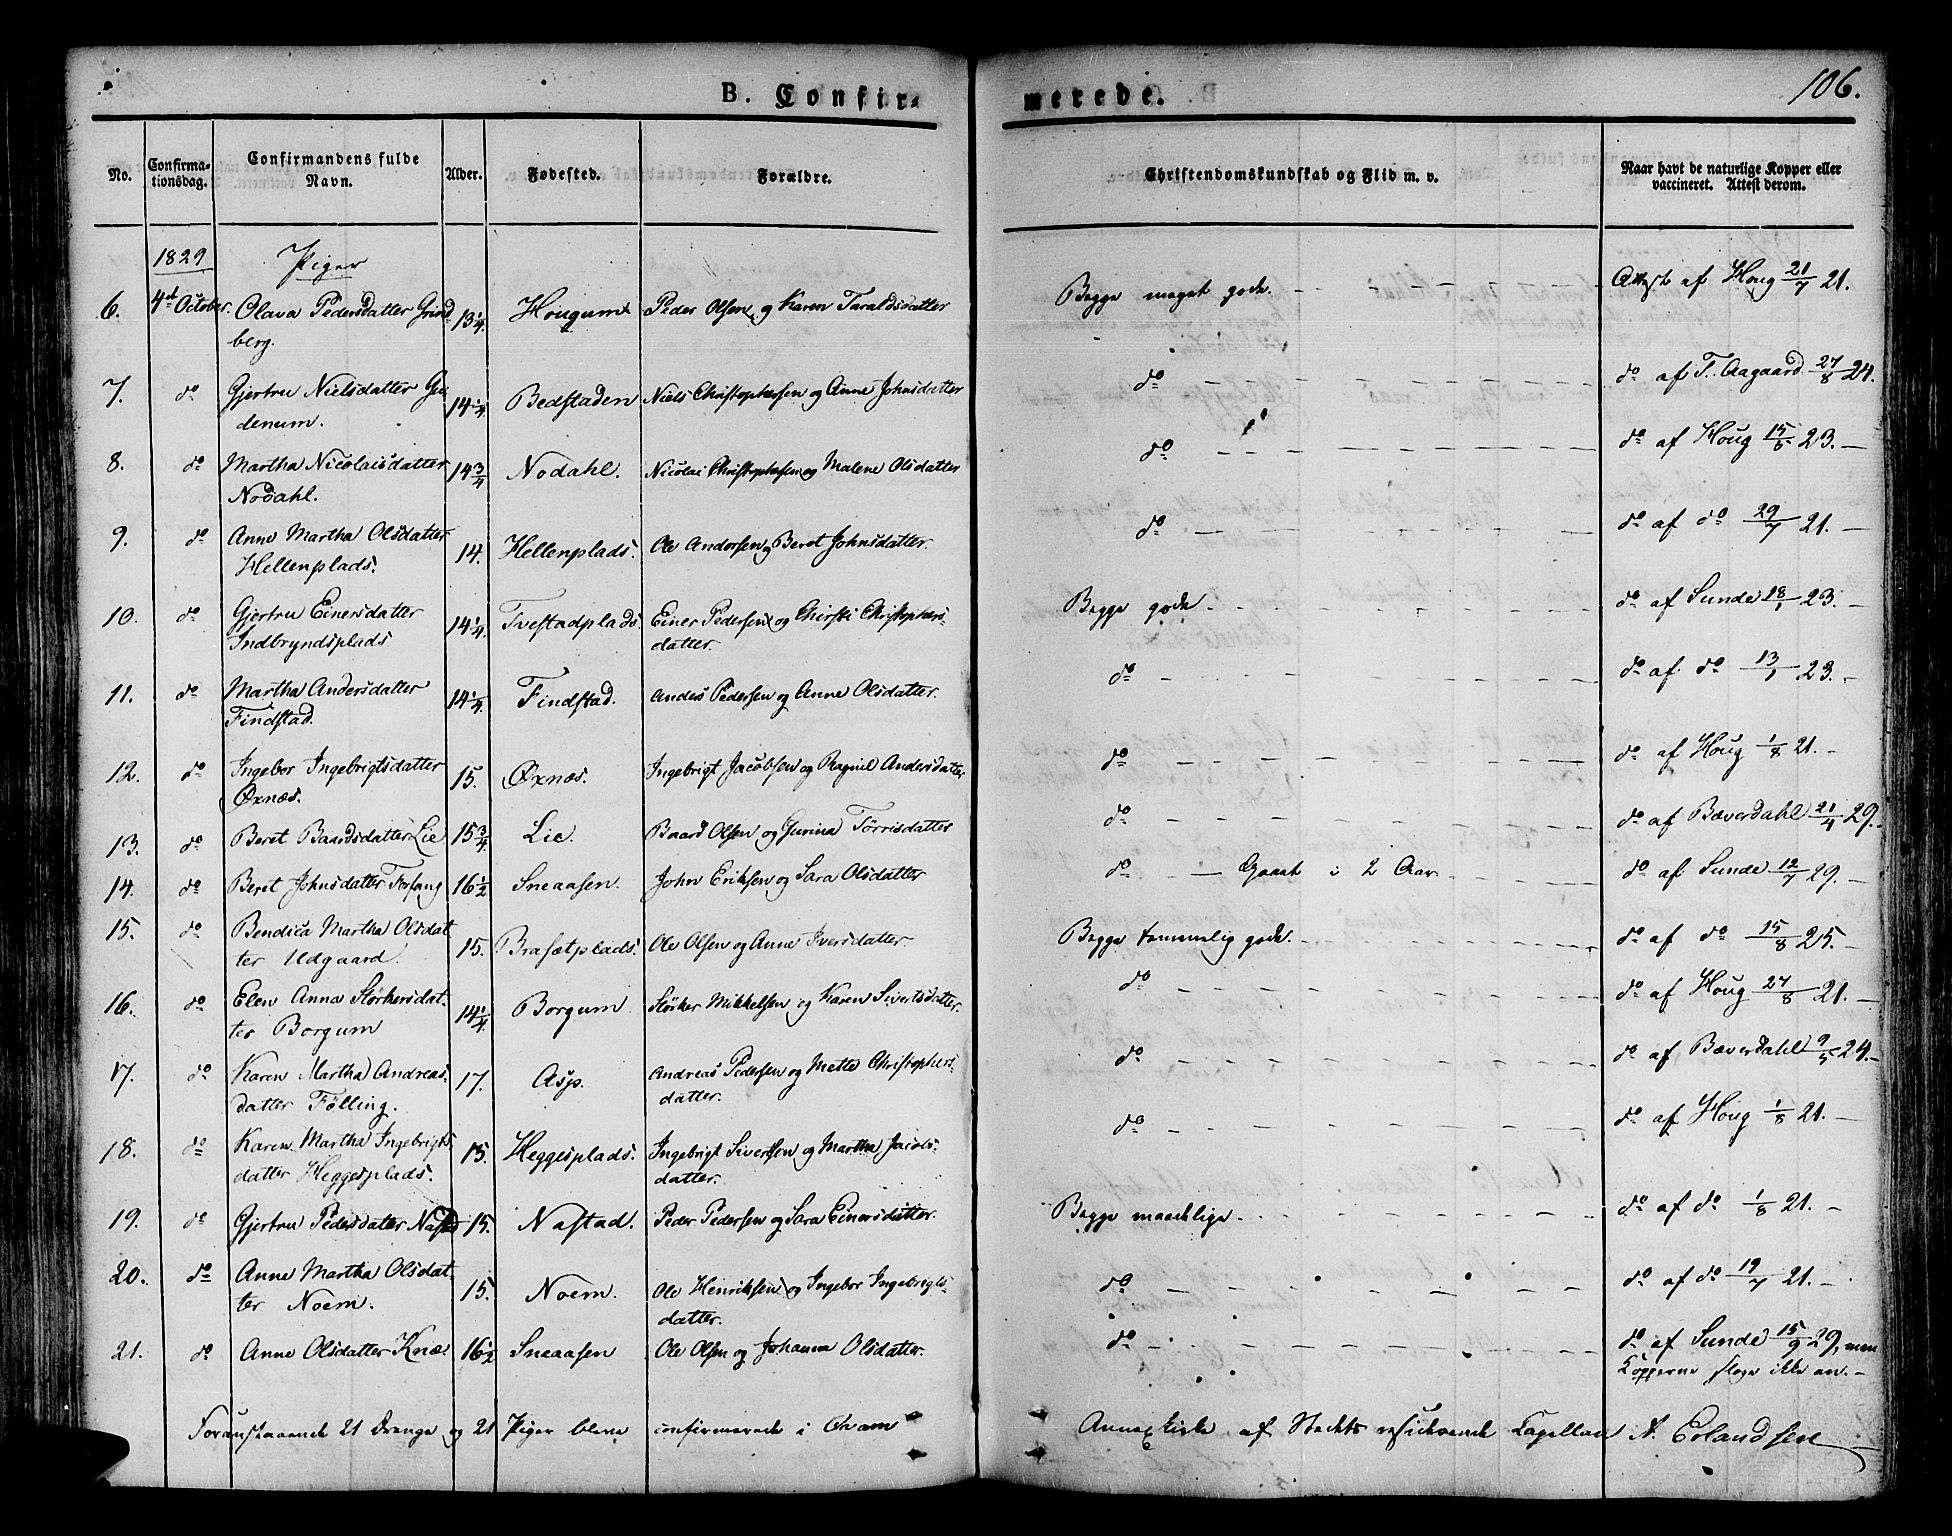 106.
B. Confirmerede.
No. Confirmationsdag. Confirmandens fulde Navn. Alder. Fødested. Forældre. Christendomskundskab og Flid m. v. Naar havt de naturlige Kopper eller vaccineret. Attest derom.
1829 Piger
6. 4de October. Olava Pedersdatter Grindberg. 13 1/4. Hougum Peder Olsen og Karen Taraldsdatter Begge meget gode. Attest af Houg 21/7 21.
7. do Gjertru Nielsdatter Gudenum. 14 1/4. Bedstaden Niels Christophersen og Anne Johnsdatter do do af T. Aagaard 27/8 24.
8. do Martha Nicolaisdatter Nodahl. 14 3/4 Nodahl. Nicolai Christophersen og Malene Olsdatter do do af Houg 15/8 23.
9. do Anne Martha Olsdatter Hellenplads. 14. Hellenplads. Ole Andersen og Beret Johnsdatter. do do af do 29/7 21.
10. do Gjertru Einersdatter Indbryndsplads 14 1/4. Tvestadplads Einer Pedersen og Chirsti Christophersdatter. Begge gode. do af Sunde 18/1 23.
11. do Martha Andersdatter Findstad. 14 1/4. Findstad. Anders Pedersen og Anne Olsdatter. do do af do 13/1 23.
12. do Ingebor Ingebrigtsdatter Øxnæs. 15. Øxnæs. Ingebrigt Jacobsen og Ragnil Andersdatter do do af Houg 1/8 21.
13. do Beret Baardsdatter Lie 15 3/4. Lie. Baard Olsen og Gurina Tørrisdatter do do af Bæverdahl 21/4 29.
14. do Beret Johnsdatter Forfang 16 1/2 Sneaasen. John Eriksen og Sara Olsdatter do Gaaet i 2 Aar do af Sunde 12/7 29.
15. do Bendica Martha Olsdatter Udgaard. 15. Brasetplads. Ole Olsen og Anne Iversdatter. Begge temmelig gode. do af do 15/8 25.
16. do Elen Anna Størkersdatter Borgum 14 1/4 Borgum Størker Mikkelsen og Karen Sivertsdatter. do do af Houg 27/8 21.
17. do Karen Martha Andreasdatter Følling. 17. Asp. Andreas Pedersen og Mette Christophersdatter. do do af Bæverdahl 9/5 24.
18. do Karen Martha Ingebrigtsdatter Heggesplads. 15. Heggesplads. Ingebrigt Sivertsen og Martha Jacobsdatter. do do af Houg 1/8 21.
19. do Gjertru Pedersdatter Nastad 15. Nastad. Peder Pedersen og Sara Einersdatter. Begge maadelige. do af do 1/8 21.
20. do Anne Martha Olsdatter Noem. 15. Noem. Ole Henriksen og Ingebor Ingebrigtsdatter. do do af do 19/7 21.
21. do Anne Olsdatter Knæ 16 1/2 Sneaasen Ole Olsen og Johanna Olsdatter. do do af Sunde 15/9 29, men Kopperne sloge ikke an.
Foranstaaende 21 Drenge og 21 Piger bleve confirmerede i Qvam Annexkirke af Stedets residerende Capellan N. Erlandsen